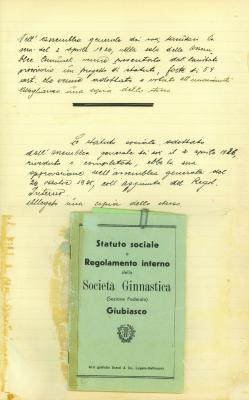 Nell' assemblea generale di soci fondatori la
sera del 2 aprile 1924, alla sala delle
venne presentato dal comitato
provvisorio un progetto di statuto, forte di 54
art. che venne adottato e votato all'unanimità
Alleghiamo una copia dello stesso
Lo statuto sociale adottato
dall'assemblea generale di soci il 2 aprile
riveduto e completato, ebbe la sua
approvazione nell'assemblea generale del
20 ottobre coll' aggiunta del Regol.
Interno
Allegato una copia dello stesso
Statuto sociale
e
Regolamento interno
della
Società Ginnastica
(Sezione Federale)
Giubiasco
Arti grafiche & Co., Lugano-Bellinzona